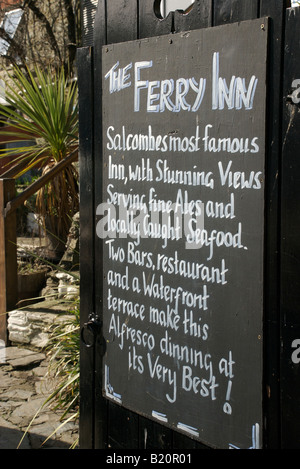 THE FERRY INN
Salcombes most famous
Inn, with Stunning Views
Serving fine Ales and
locally Caught Seafood.
Two Bars, restaurant
and a Waterfront
terrace make this
Alfresco dinning at
its Very Best!
alamy
Image ID: B20R01
www.alamy.com